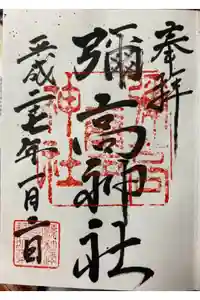 奉拝
彌高神社
平成二七年一月二日